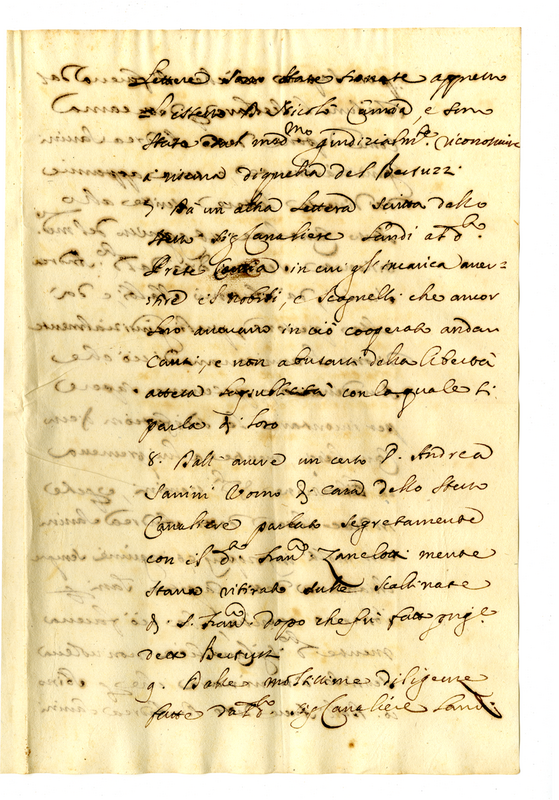 Lettere sono state trovate appresso
l'Estesso D. Nicolò Coccia, e sono
state dal med.mo giudizialm.te riconosciute
a riserva di quella del Bertuzzi.
7. Da un altra lettera scritta dallo
stesso Sig. Cavaliere Landi al d.o
Prete Coccia in cui gl'incarica aver-
tire e i nobili, e Scagnelli che ancor
loro avevano in ciò cooperato andar
cauti, e non abusarsi della libertà
attesa la publicità con la quale si
parla di loro
8. Dall' avere un certo P. Andrea
Uomo di Cam.a dello stesso
Cavaliere parlato segretamente
con il d.o Fran.co Zanelotti mentre
stava ritirato sulle scalinate
di S. Fran.co dopo che fu fatto prig.e
detto Bertuzzi.
9. Dalle moltissime diligenze
fatte dal d.o Sig. Cavaliere Landi